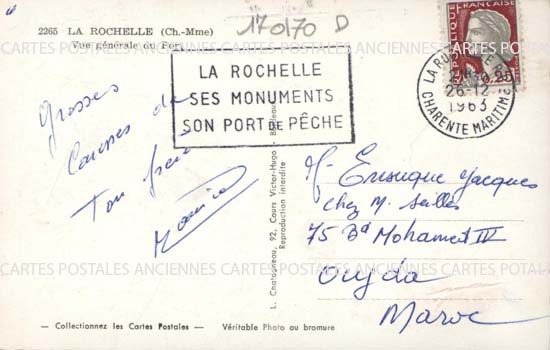 2265 LA ROCHELLE (Ch.-Mme)
Vue générale du Port
170170 D
LA ROCHELLE
SES MONUMENTS
SON PORT DE PÊCHE
REPUBLIQUE FRANCAISE
0,25
LA ROCHELLE
26-12
1963
CHARENTE MARITIME
Grosses
Caresses de
Ton frère
Maurice
L. Chatagneau, 92, Cours Victor-Hugo - Bordeaux
Reproduction interdite
Mr Ensuque Jacques
chez M.
75 Bd Mohamed V
Oujda
Maroc
CARTES POSTALES ANCIENNES CARTES POSTALES ANCIENNES
CARTES POSTALES ANCIENNES CARTES POSTALES ANCIENNES CARTES POSTALES
— Collectionnez les Cartes Postales — Véritable Photo au bromure